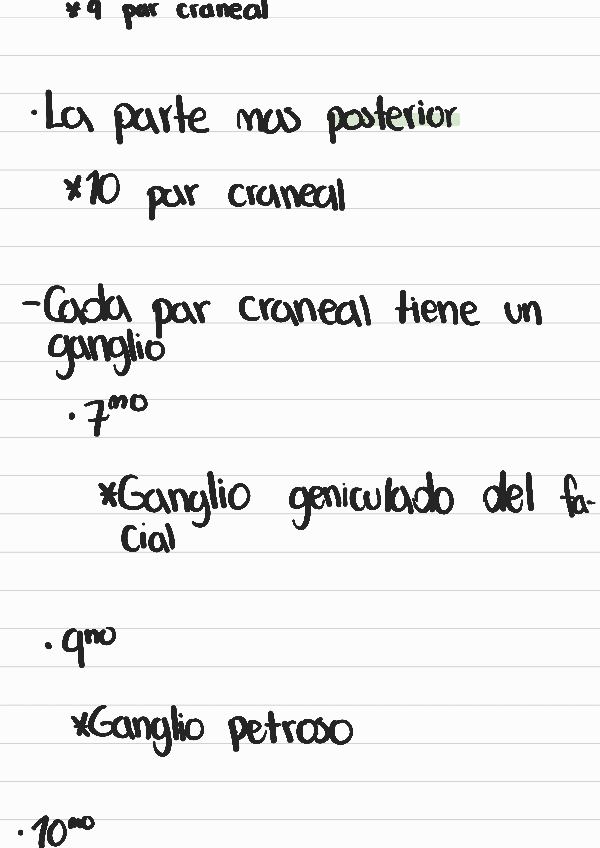 *9 par craneal
·La parte mas posterior
*10 par craneal
-Cada par craneal tiene un
ganglio
·7mo
*Ganglio geniculado del fa-
cial
·9no
*Ganglio petroso
·10mo